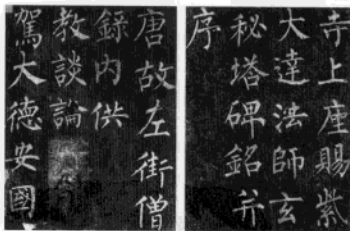 唐故左街僧
録内供
教談論
駕大德安國
寺上座賜紫
大達法師玄
秘塔碑銘并
序